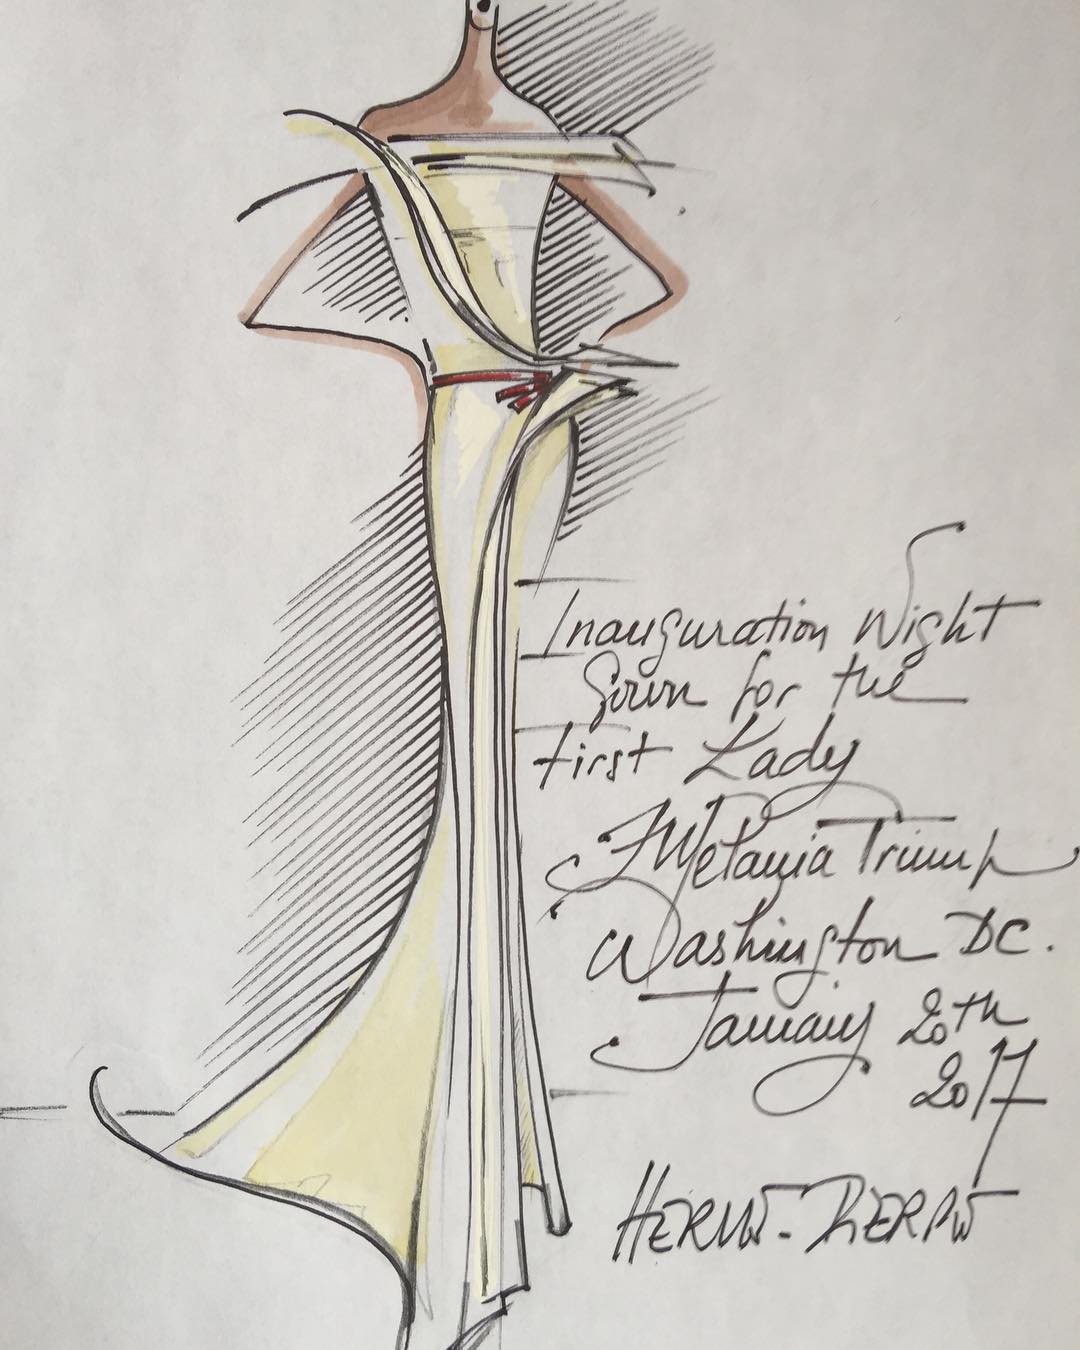 Inauguration Night
Gown for the
First Lady
Melania Trump
Washington DC.
January 20th
2017
HERVE-PIERRE